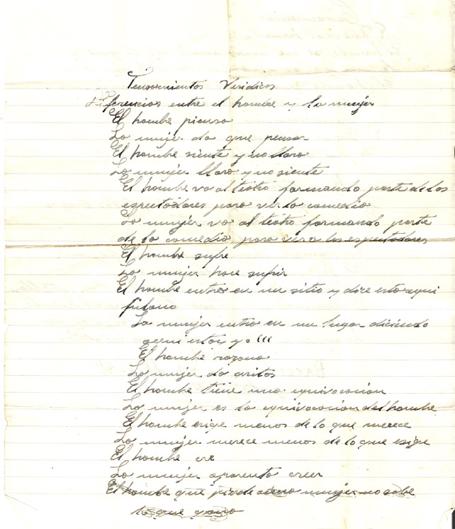 Verídicos
Diferencias entre el hombre y la mujer
El hombre piensa
La mujer da que pensar
El hombre siente y no llora
La mujer llora y no siente
El hombre va al teatro formando parte de los
espectadores para ver la comedia
La mujer va al teatro formando parte
de la comedia para ver a los espectadores
El hombre sufre
La mujer hace sufrir
El hombre entra en un sitio y dice esta aqui
fulano
La mujer entra en un lugar diciendo
aqui estoy yo !!!
El hombre razona
La mujer da gritos
El hombre tiene una equivocacion
La mujer es la equivocacion del hombre
El hombre exige menos de lo que merece
La mujer merece menos de lo que exige
El hombre cre
La mujer aparenta creer
El hombre que pierde mujer no sabe
lo que gana